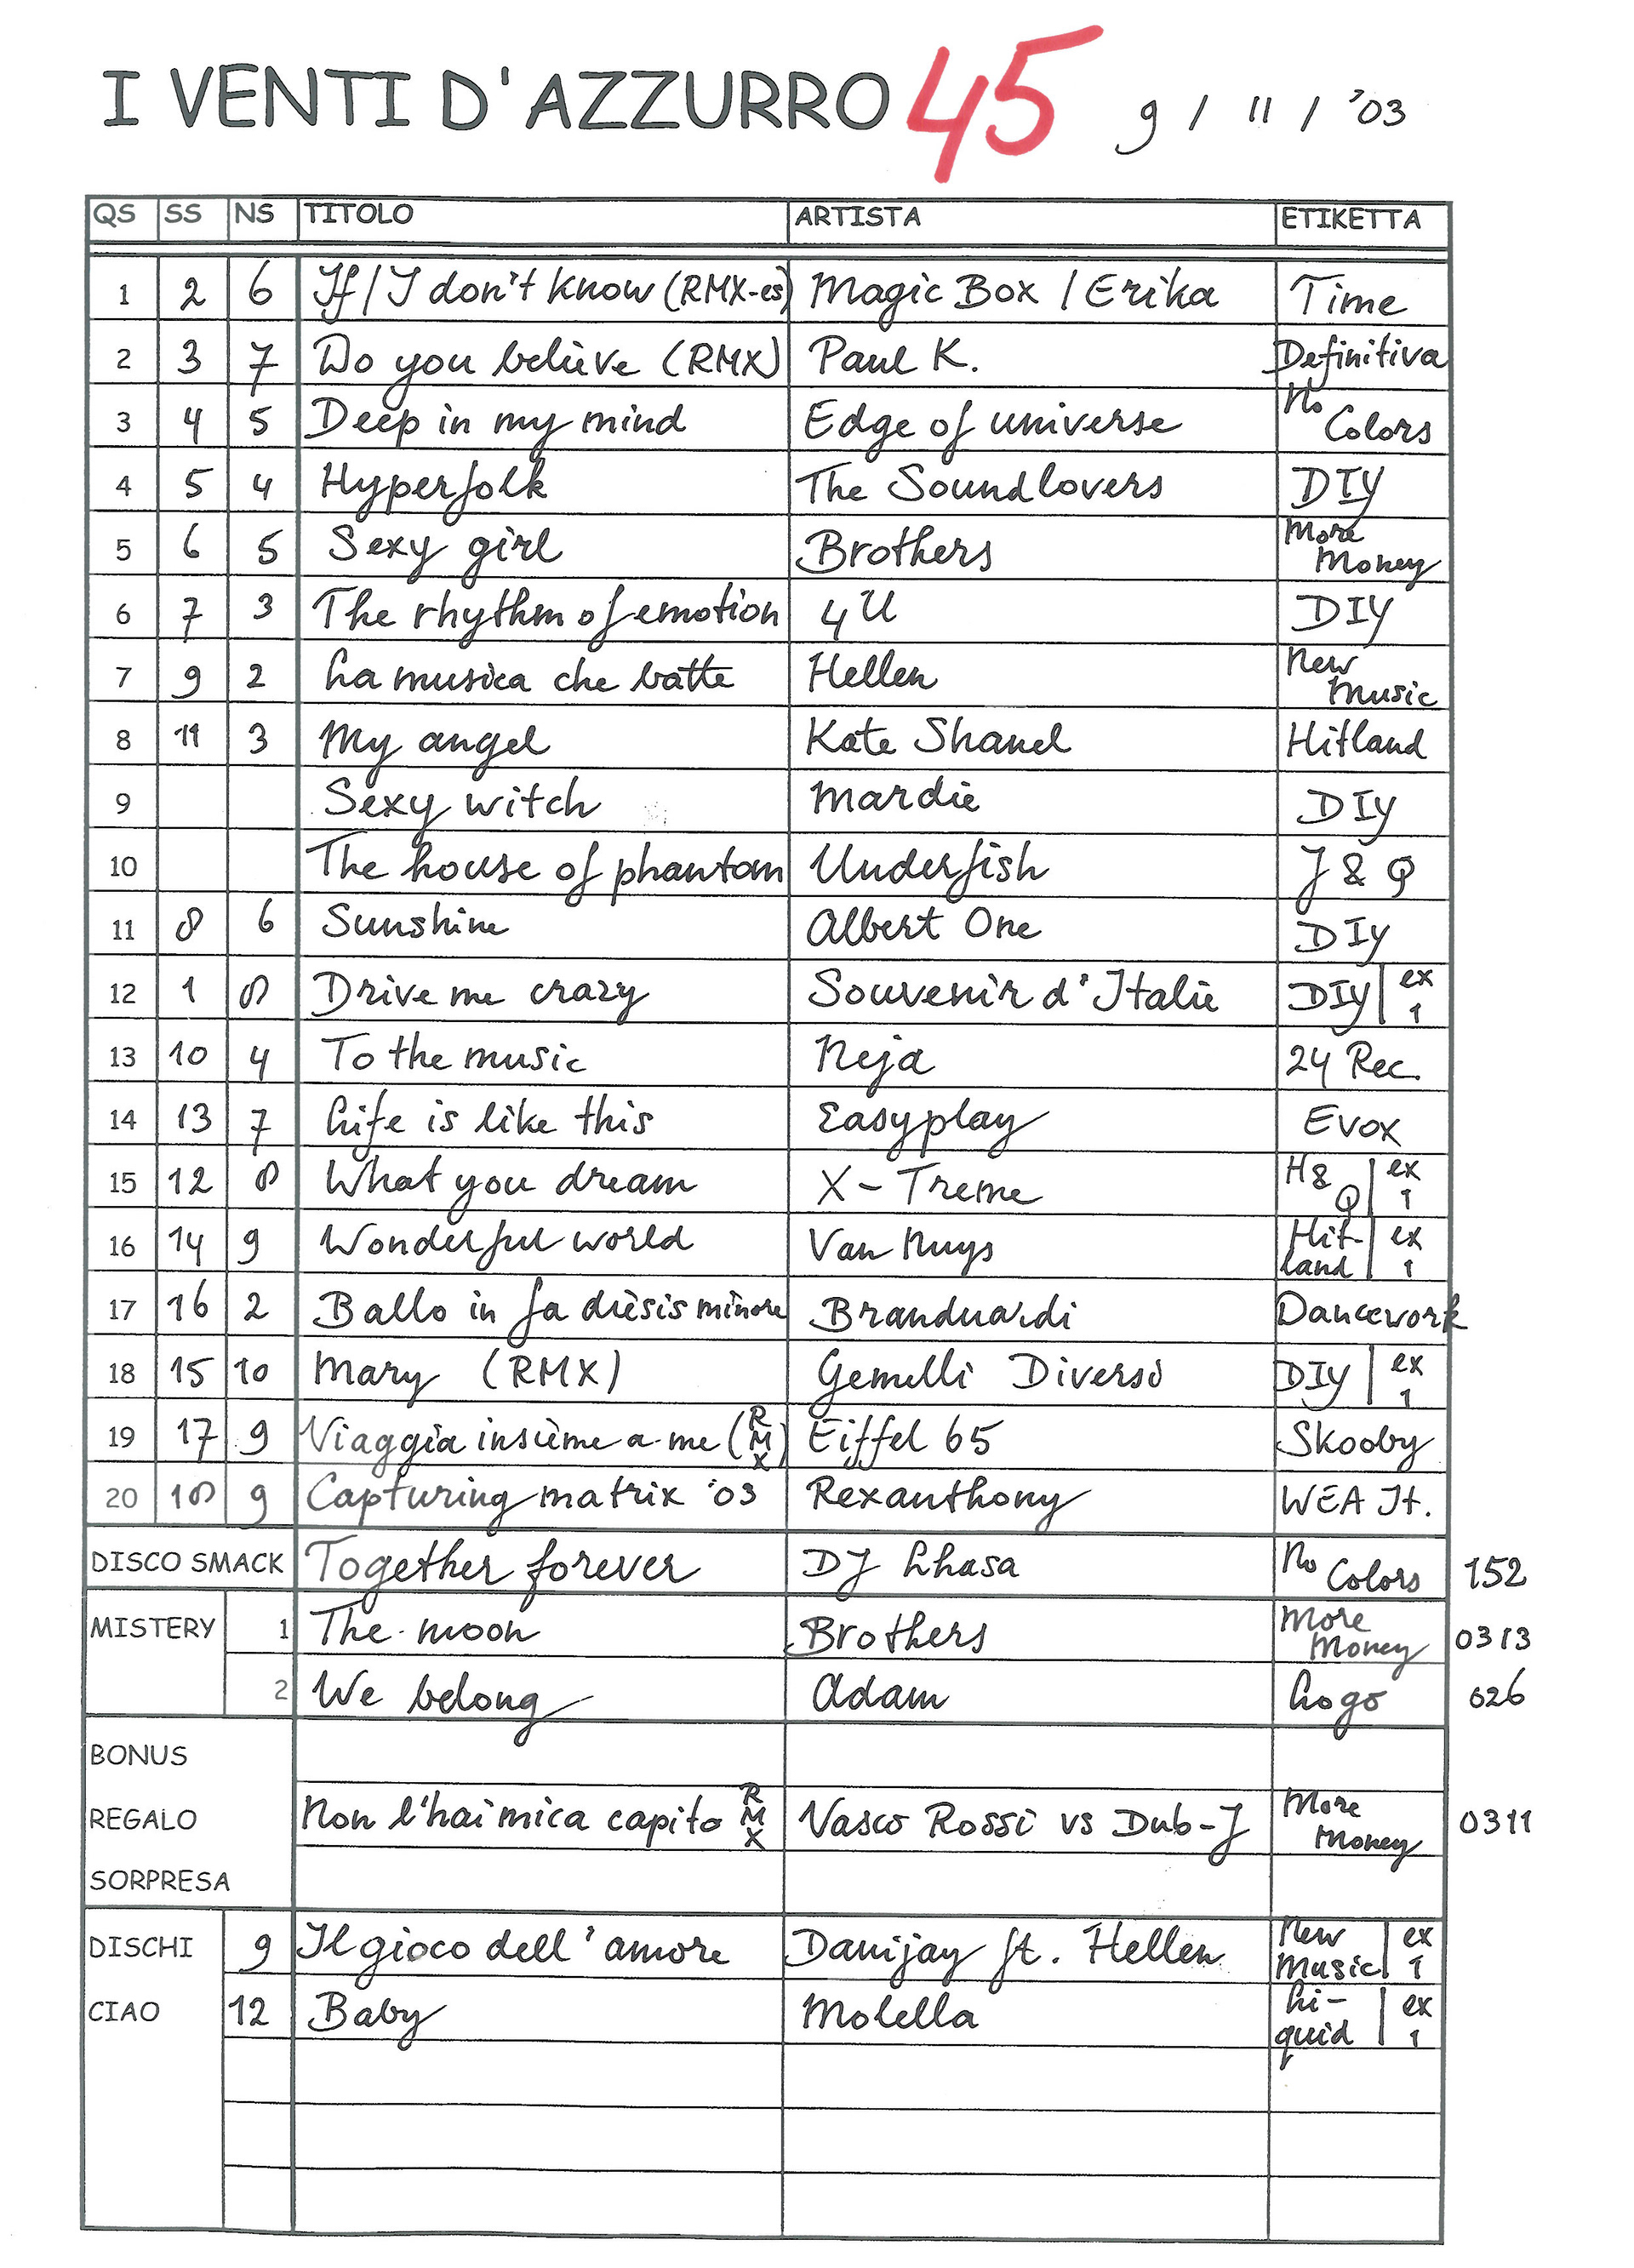 I VENTI D'AZZURRO 45 9 / 11 / '03
QS SS NS TITOLO ARTISTA ETIKETTA
1 2 6 If / I don't know (RMX-es) Magic Box / Erika Time
2 3 7 Do you believe (RMX) Paul K. Definitiva
3 4 5 Deep in my mind Edge of universe No Colors
4 5 4 Hyperfolk The Soundlovers DIY
5 6 5 Sexy girl Brothers More Money
6 7 3 The rhythm of emotion 4U DIY
7 9 2 La musica che batte Hellen New Music
8 11 3 My angel Kate Shanel Hitland
9 Sexy witch Mardie DIY
10 The house of phantom Underfish J & Q
11 8 6 Sunshine Albert One DIY
12 1 8 Drive me crazy Souvenir d'Italie DIY | ex 1
13 10 4 To the music Neja 24 Rec.
14 13 7 Life is like this Easyplay Evox
15 12 8 What you dream X-Treme H & Q | ex 1
16 14 9 Wonderful world Van Nuys Hit-land | ex 1
17 16 2 Ballo in fa dièsis minore Branduardi Dancework
18 15 10 Mary (RMX) Gemelli Diversi DIY | ex 1
19 17 9 Viaggia insieme a me (RMX) Eiffel 65 Skooby
20 18 9 Capturing matrix '03 Rexanthony WEA It.
DISCO SMACK Together forever DJ Lhasa No Colors 152
MISTERY 1 The moon Brothers More Money 0313
2 We belong Adam Logo 026
BONUS
REGALO Non l'hai mica capito RMX Vasco Rossi vs Dub-J More Money 0311
SORPRESA
DISCHI 9 Il gioco dell'amore Danijay ft. Hellen New Music | ex 1
CIAO 12 Baby Molella Li-quid | ex 1